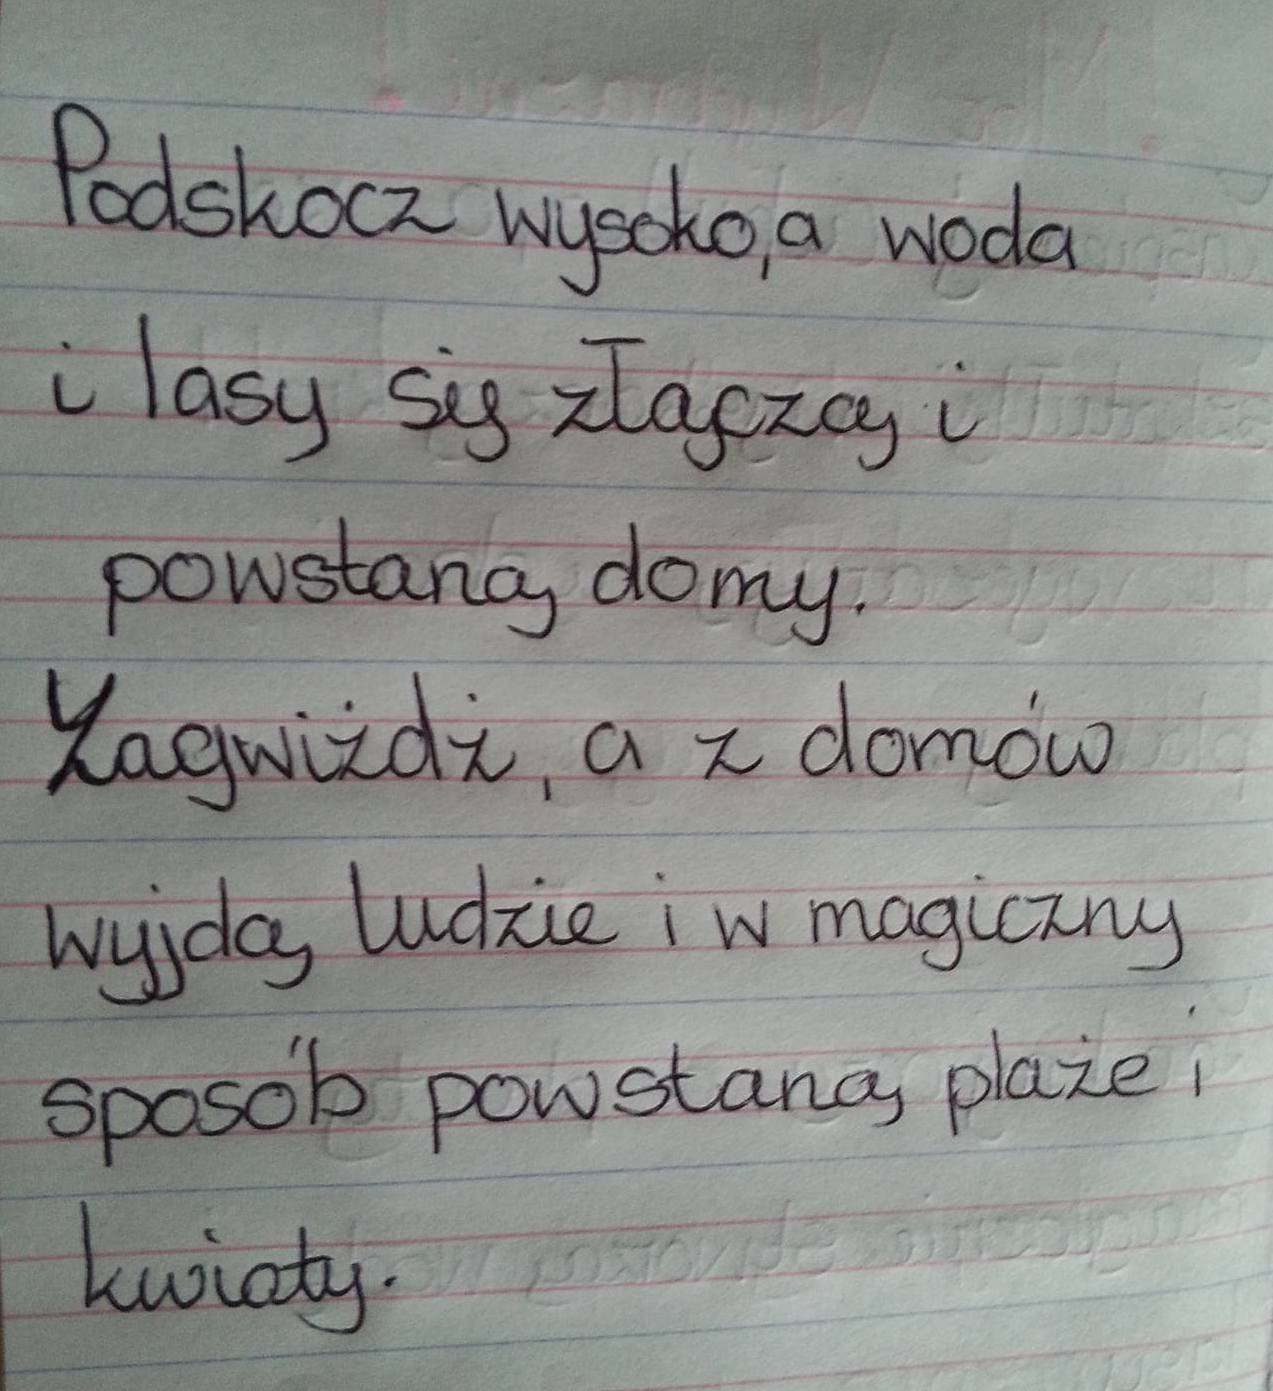 Podskocz wysoko, a woda
i lasy się złączą i
powstaną domy.
Zagwiżdż, a z domów
wyjdą ludzie i w magiczny
sposób powstaną plaże i
kwiaty.